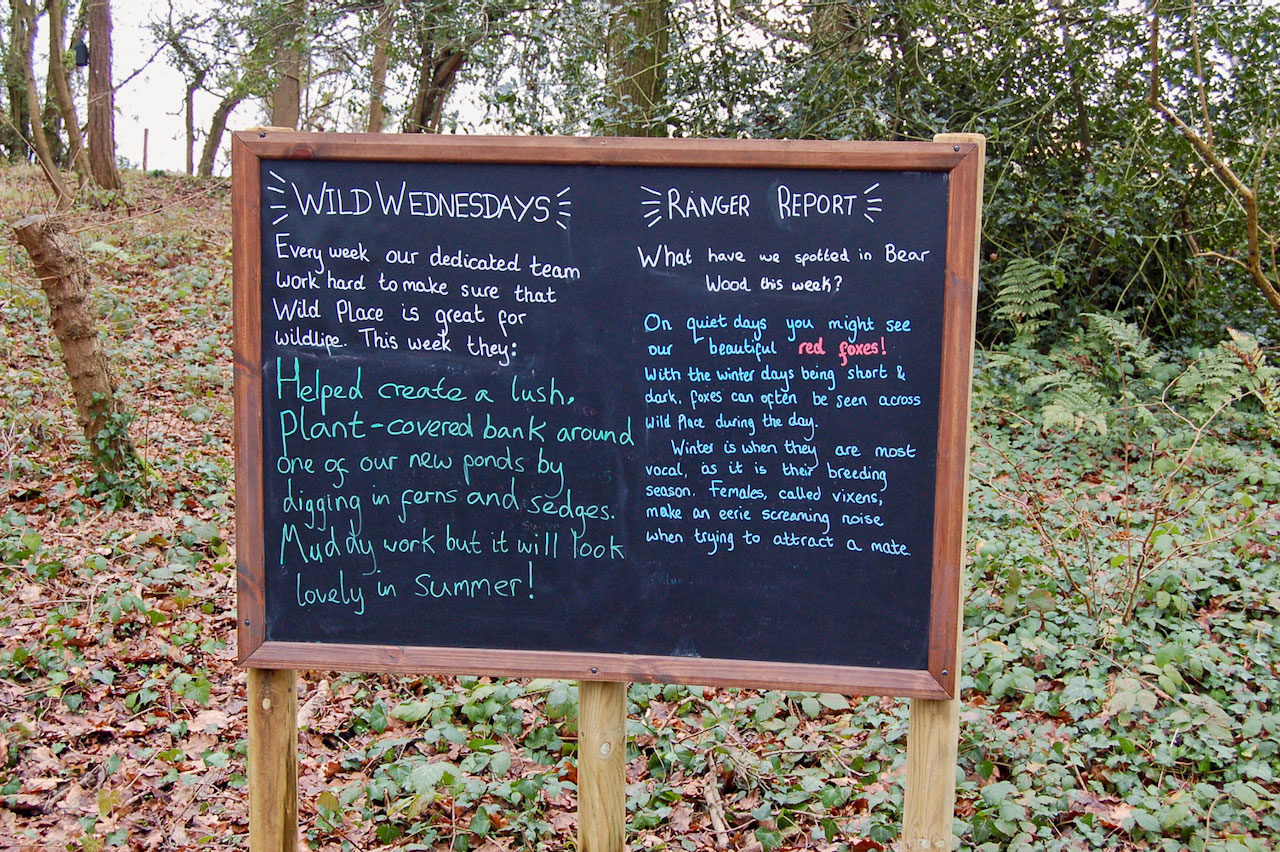 WILD WEDNESDAYS
Every week our dedicated team
work hard to make sure that
Wild Place is great for
wildlife. This week they:
Helped create a lush,
Plant-covered bank around
one of our new ponds by
digging in ferns and sedges.
Muddy work but it will look
lovely in Summer!
RANGER REPORT
What have we spotted in Bear
Wood this week?
On quiet days you might see
our beautiful red foxes!
With the winter days being short &
dark, foxes can often be seen across
Wild Place during the day.
Winter is when they are most
vocal, as it is their breeding
season. Females, called vixens,
make an eerie screaming noise
when trying to attract a mate